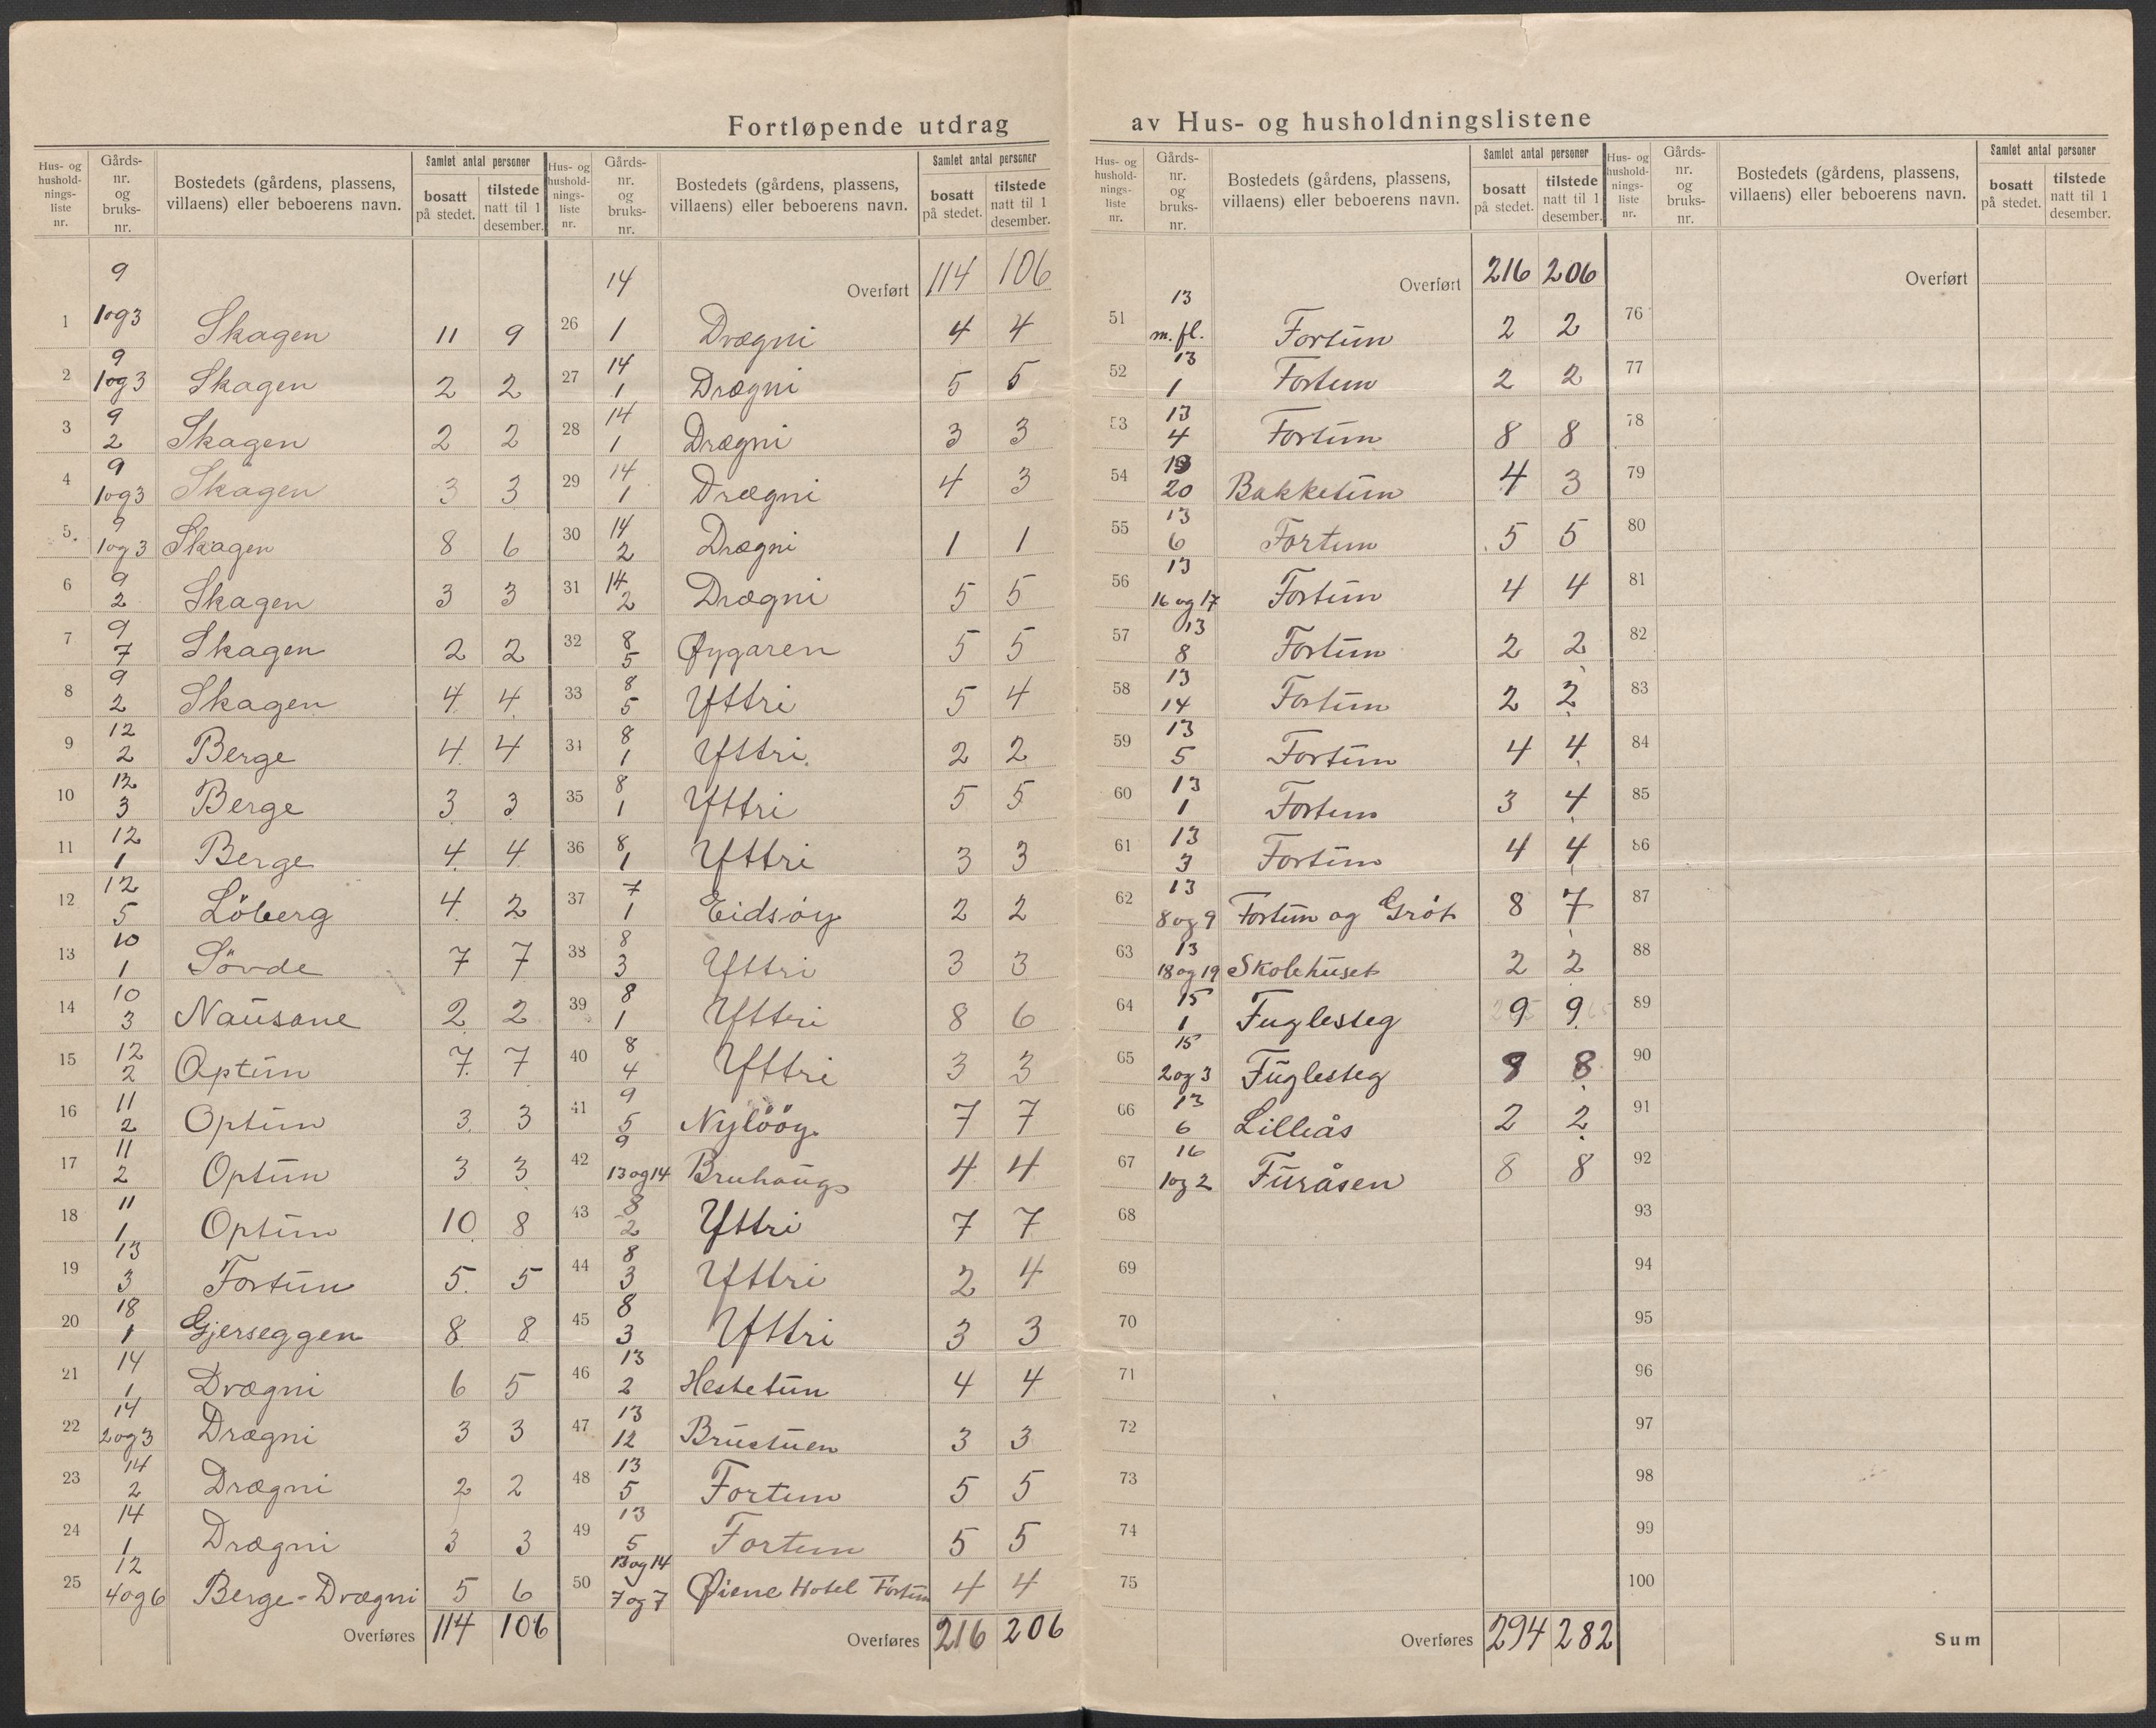 Fortløpende utdrag av Hus- og husholdningslistene
Hus- og hushold-nings-liste nr. Gårds-nr. og bruks-nr. Bostedets (gårdens, plassens, villaens) eller beboerens navn. Samlet antal personer bosatt på stedet. tilstede natt til 1 desember.
1 9 1og3 Skagen 11 9
2 9 1og3 Skagen 2 2
3 9 2 Skagen 2 2
4 9 1og3 Skagen 3 3
5. 9 1og3 Skagen 8 6
6 9 2 Skagen 3 3
7 9 7 Skagen 2 2
8 9 2 Skagen 4 4
9 12 2 Berge 4 4
10 12 3 Berge 3 3
11 12 1 Berge 4 4
12 12 5 Löberg 4 2
13 10 1 Sövde 7 7
14 10 3 Naüsane 2 2
15 12 2 Optün 7 7
16 11 2 Optün 3 3
17 11 2 Optün 3 3
18 11 1 Optün 10 8
19 13 3 Fortün 5 5
20 18 1 Gjerseggen 8 8
21 14 1 Drægni 6 5
22 14 2og3 Drægni 3 3
23 14 2 Drægni 2 2
24 14 1 Drægni 3 3
25 12 4og6 Berge-Drægni 5 6
Overføres 114 106
Hus- og hushold-nings-liste nr. Gårds-nr. og bruks-nr. Bostedets (gårdens, plassens, villaens) eller beboerens navn. Samlet antal personer bosatt på stedet. tilstede natt til 1 desember.
Overført 114 106
26 14 1 Drægni 4 4
27 14 1 Drægni 5 5
28 14 1 Drægni 3 3
29 14 1 Drægni 4 3
30 14 2 Drægni 1 1
31 14 2 Drægni 5 5
32 8 5 Øygaren 5 5
33 8 5 Yttri 5 4
34 8 1 Yttri 2 2
35 8 1 Yttri 5 5
36 8 1 Yttri 3 3
37 7 1 Eidsøy 2 2
38 8 3 Yttri 3 3
39 8 1 Yttri 8 6
40 8 4 Yttri 3 3
41 9 5 Nylöög 7 7
42 9 13og14 Bruhaugs 4 4
43 8 2 Yttri 7 7
44 8 3 Yttri 2 4
45 8 3 Yttri 3 3
46 13 2 Hestetün 4 4
47 13 12 Brüstuen 3 3
48 13 5 Fortun 5 5
49 13 5 Fortun 5 5
50 13og14 7og7 Øiene Hotel Fortün 4 4
Overføres 216 206
Hus- og hushold-nings-liste nr. Gårds-nr. og bruks-nr. Bostedets (gårdens, plassens, villaens) eller beboerens navn. Samlet antal personer bosatt på stedet. tilstede natt til 1 desember.
Overført 216 206
51 13 m.fl. Fortün 2 2
52 13 1 Fortun 2 2
53 13 4 Fortün 8 8
54 13 20 Bakketün 4 3
55 13 6 Fortun 5 5
56 13 16 og 17 Fortün 4 4
57 13 8 Fortün 2 2
58 13 14 Fortün 2 2
59 13 5 Fortün 4 4
60 13 1 Fortun 3 4
61 13 3 Fortün 4 4
62 13 8og9 Fortün og Grøt 8 7
63 13 18og19 Skolehuset 2 2
64 15 1 Fuglesteg 9 9
65 15 2og3 Füglesteg 9 8
66 13 6 Lilleås 2 2
67 16 1og2 Füråsen 8 8
68
69
70
71
72
73
74
75
Overføres 294 282
Hus- og hushold-nings-liste nr. Gårds-nr. og bruks-nr. Bostedets (gårdens, plassens, villaens) eller beboerens navn. Samlet antal personer bosatt på stedet. tilstede natt til 1 desember.
Overført
76
77
78
79
80
81
82
83
84
85
86
87
88
89
90
91
92
93
94
95
96
97
98
99
100
Sum